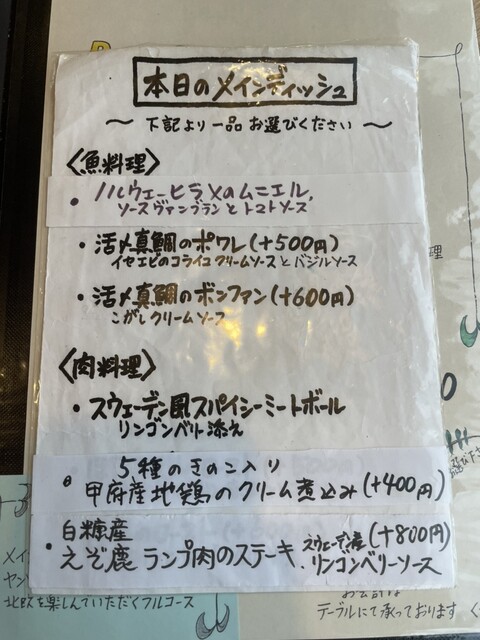 本日のメインディッシュ
〜 下記より一品 お選びください 〜
〈魚料理〉
・ノルウェーヒラメのムニエル,
ソースヴァンブランとトマトソース
・活〆真鯛のポワレ(+500円)
イセエビのコライユクリームソースとバジルソース
・活〆真鯛のボンファン(+600円)
こがしクリームソース
〈肉料理〉
・スウェーデン風スパイシーミートボール
リンゴンベリー添え
・5種のきのこ入り
甲府産地鶏のクリーム煮込み(+400円)
白糠産
・えぞ鹿 ランプ肉のステーキ (+800円)
スウェーデン産
リンゴンベリーソース
理
メイ
ヤン
北欧を楽しんでいただくフルコース
お会計は
テーブルにて承っております